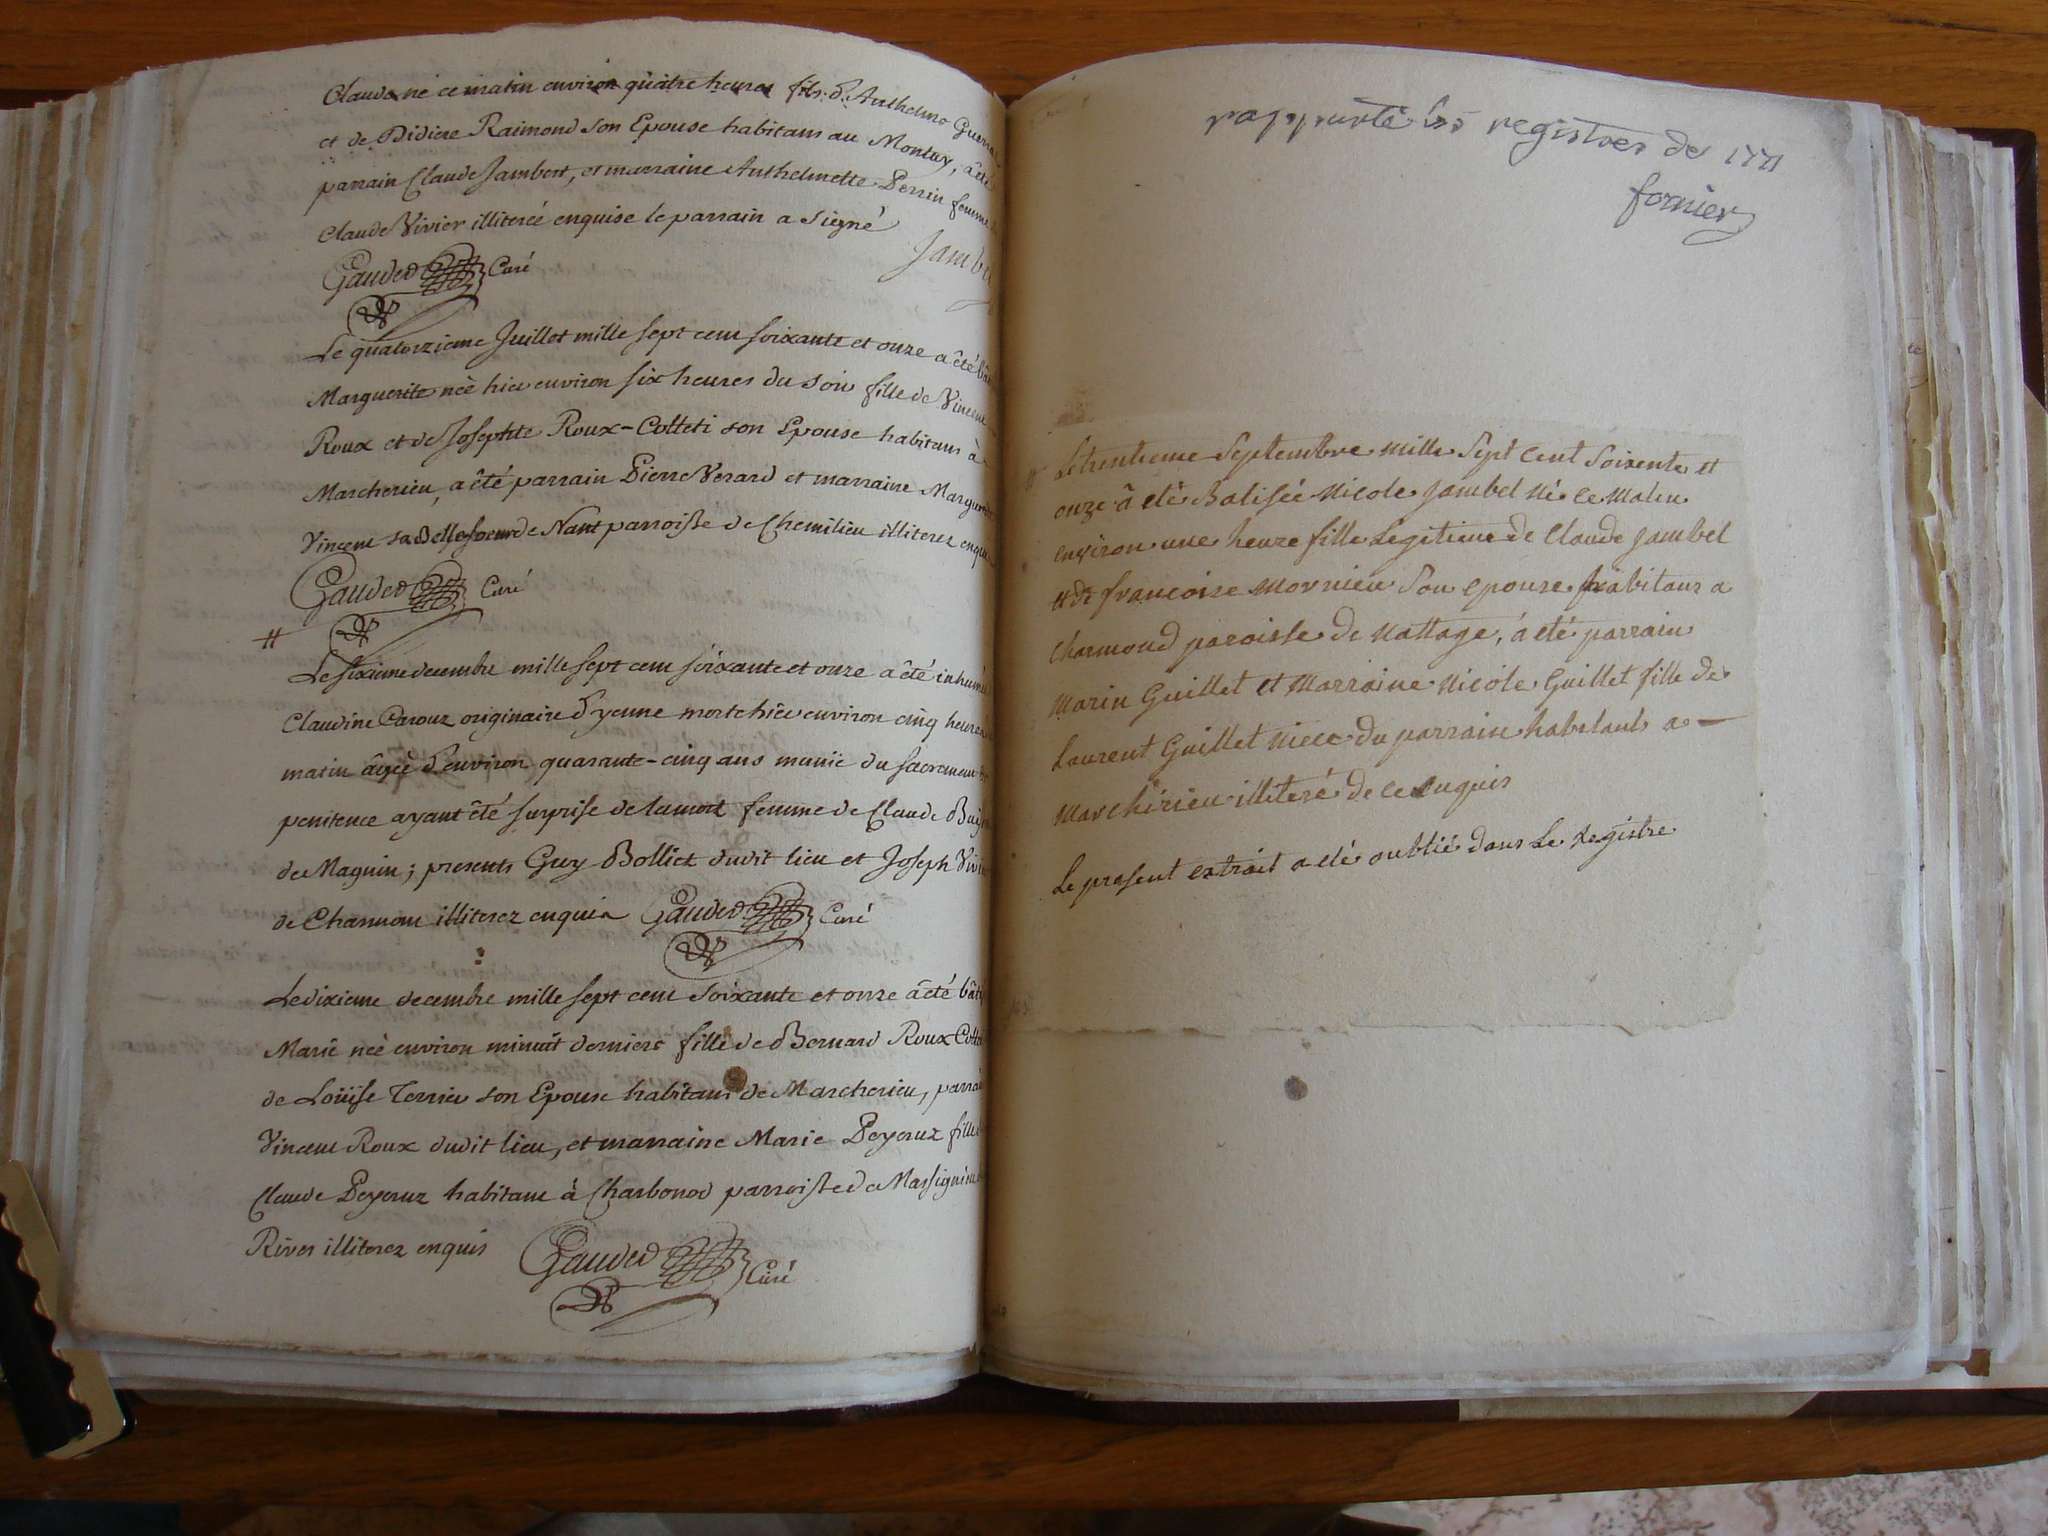 Claude né ce matin environ quatre heures fils d'Anthelme
et de Didiere Raimond son Epouse habitans au Montay, a été
parrain Claude Jambert, et marraine Anthelmette Perrin femme
Claude Vivier illiterée enquise le parrain a signé
Gauded Curé
Le quatorzieme Juillet mille sept cent soixante et onze a été
Marguerite née hier environ six heures du soir fille de Vincent
Roux et de Josephte Roux-Colleti son Epouse habitans à
Marcherieu, a été parrain Pierre Verard et marraine
Vincent sa Bellesoeur de Nant parroisse de Chemilieu illiterez
Gauded Curé
#
Le sixieme decembre mille sept cent soixante et onze a été inhumée
Claudine Carouz originaire d'yenne morte hier environ cinq heures
matin âgée d'environ quarante-cinq ans munie du sacrement
penitence ayant été surprise de la mort femme de Claude
de Magnin; presents Guy Bolliet dudit lieu et Joseph
de Charmont illiterez enquis Gauded Curé
Le dixieme decembre mille sept cent soixante et onze a été
Marie née environ minuit derniere fille de Bernard Roux
de Loüise Terrier son Epouse habitans de Marcherieu,
Vincent Roux dudit lieu, et marraine Marie Peyeruz fille
Claude Peyeruz habitant à Charbonod parroisse de
Rives illiterez enquis Gauded Curé
rapporté les registres de 1771
fornier
Le trentieme Septembre mille Sept Cent Soixente et
onze â eté Batisée Nicole Jambet Né ce Matin
environ une heure fille Legitime de Claude Jambet
et de françoise Mornieu Son epouse habitans a
Charmond paroisse de Nattage, á eté parrain
Marin Guillet et Marraine Nicole Guillet fille de
Laurent Guillet Niece du parrain habitants a
Marchérieu illiteré de ce Enquis
Le present extrait a eté oublié dans Le Registre